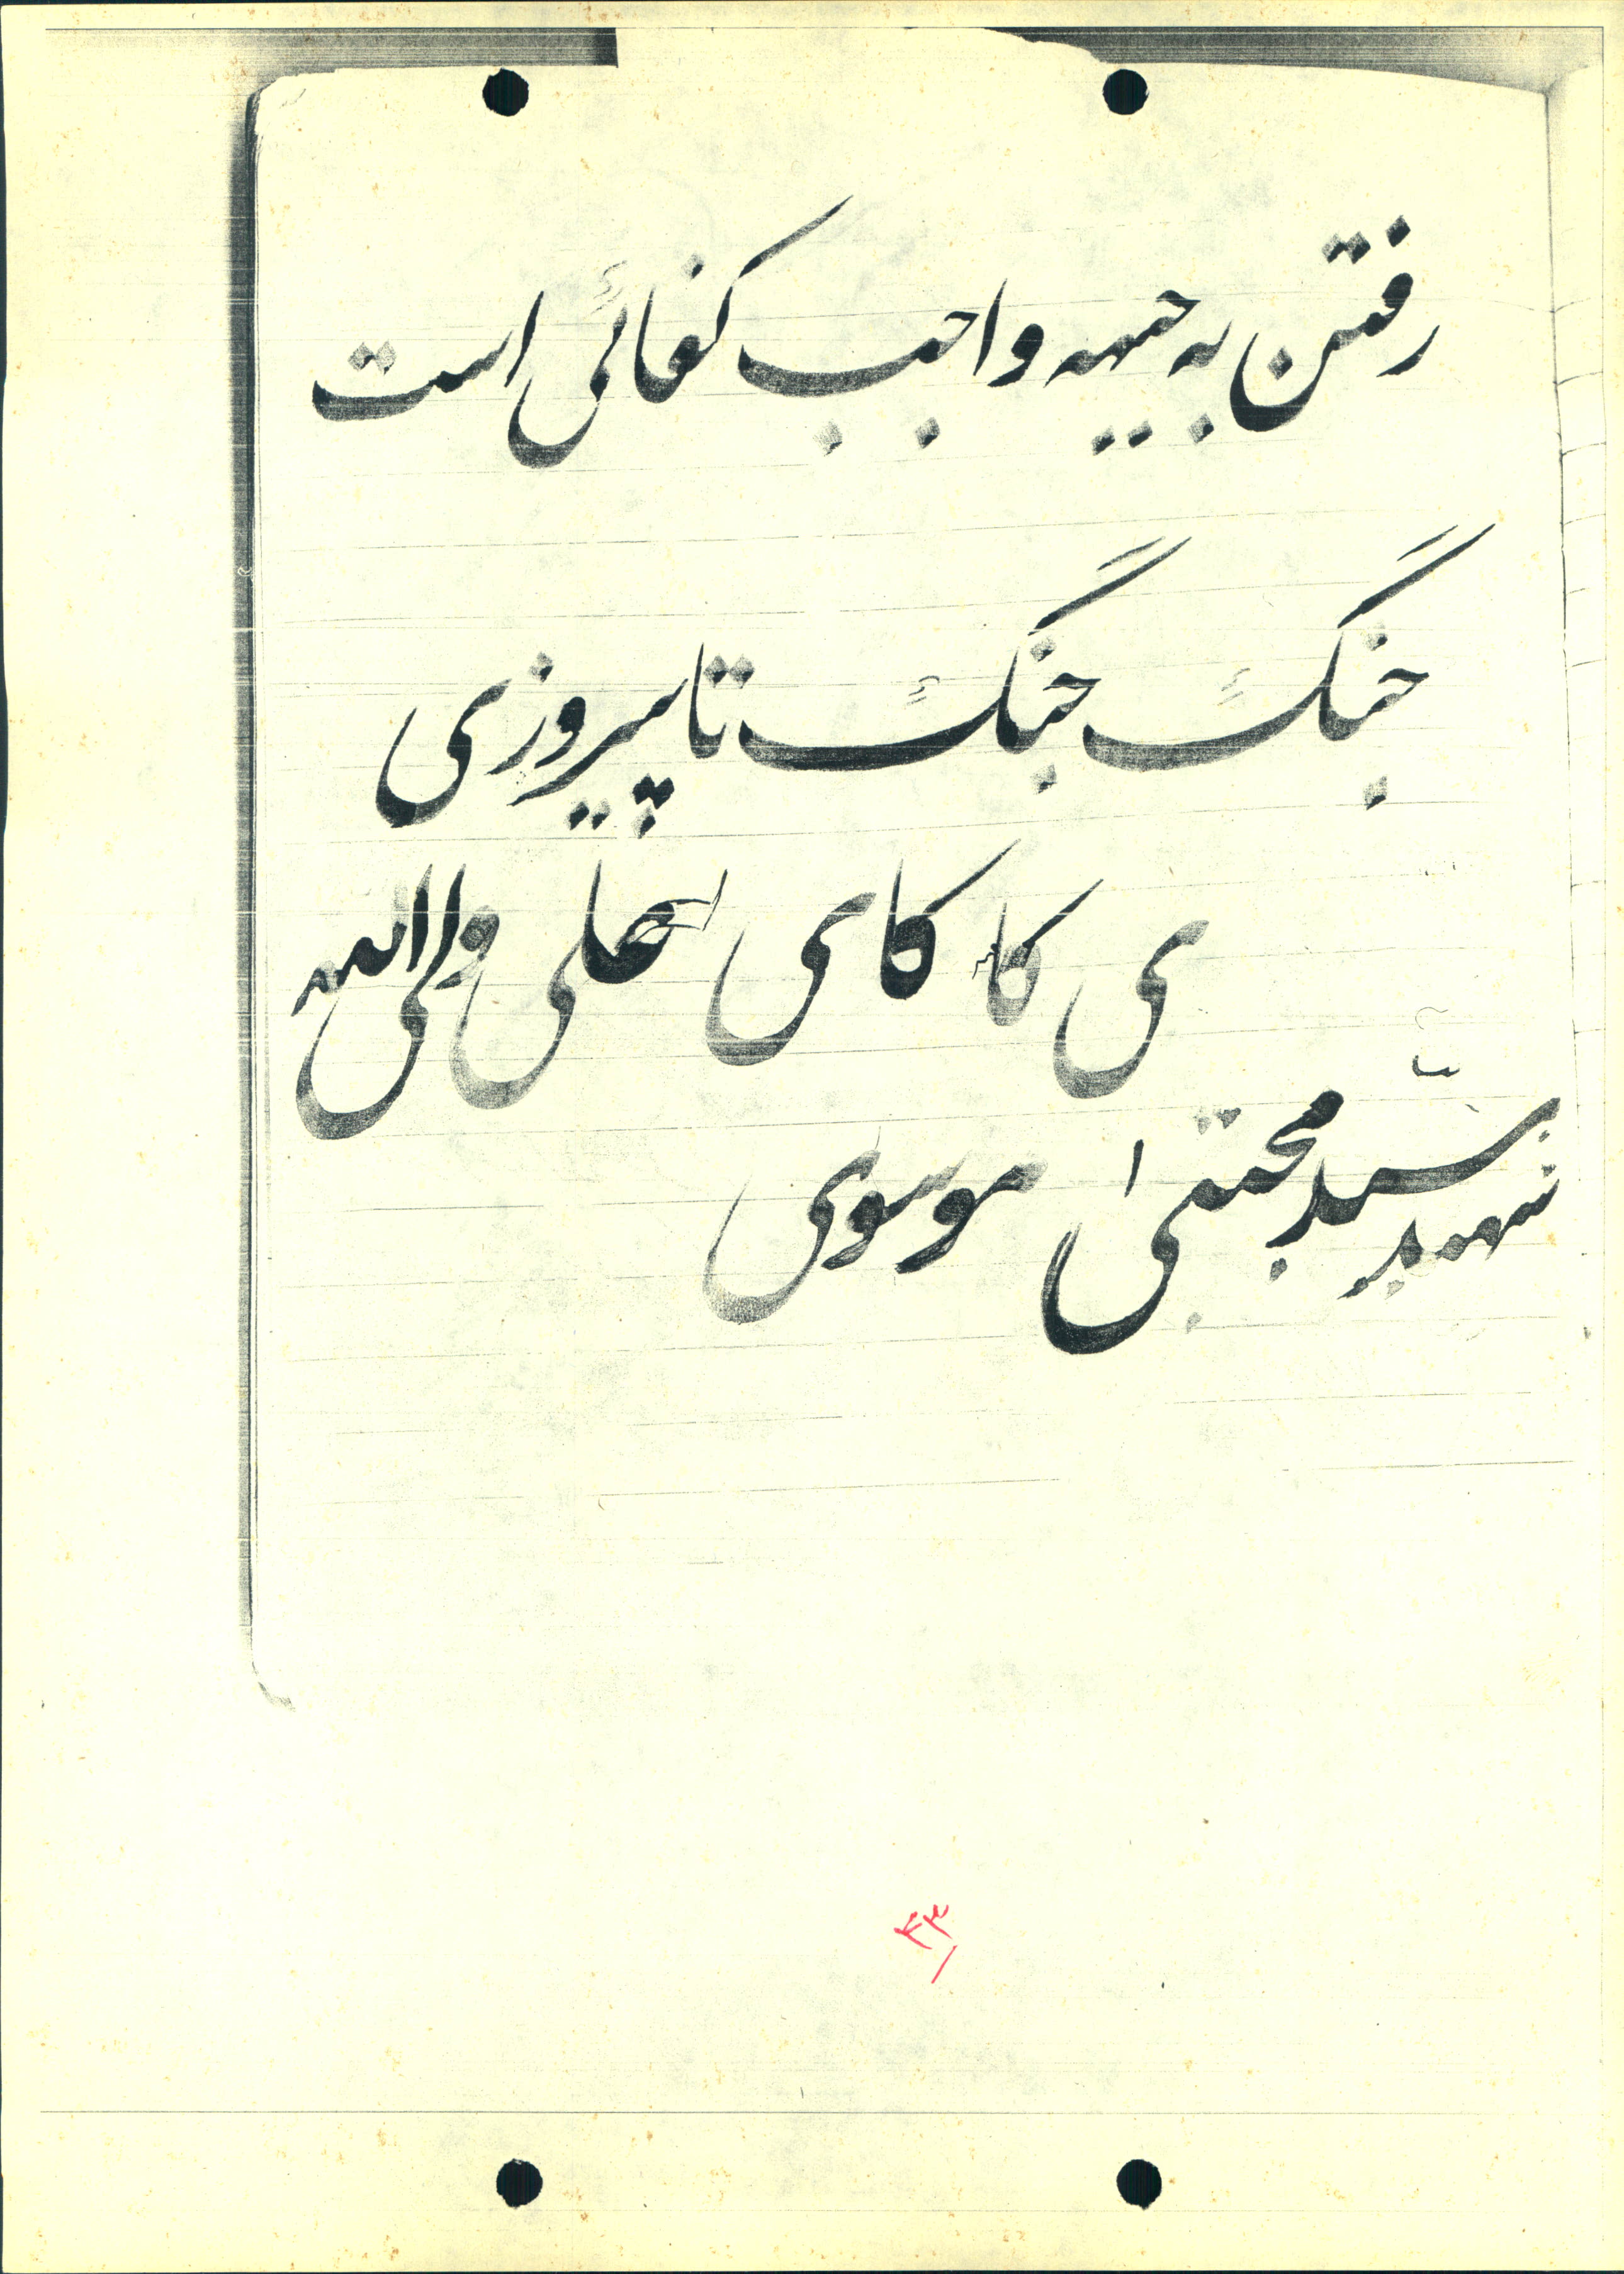 رفتن به جبهه واجب کفائی است
جنگ جنگ تا پیروزی
ی کا کای علی ولی الله
شهید سید مجتبی موسوی
۴۳